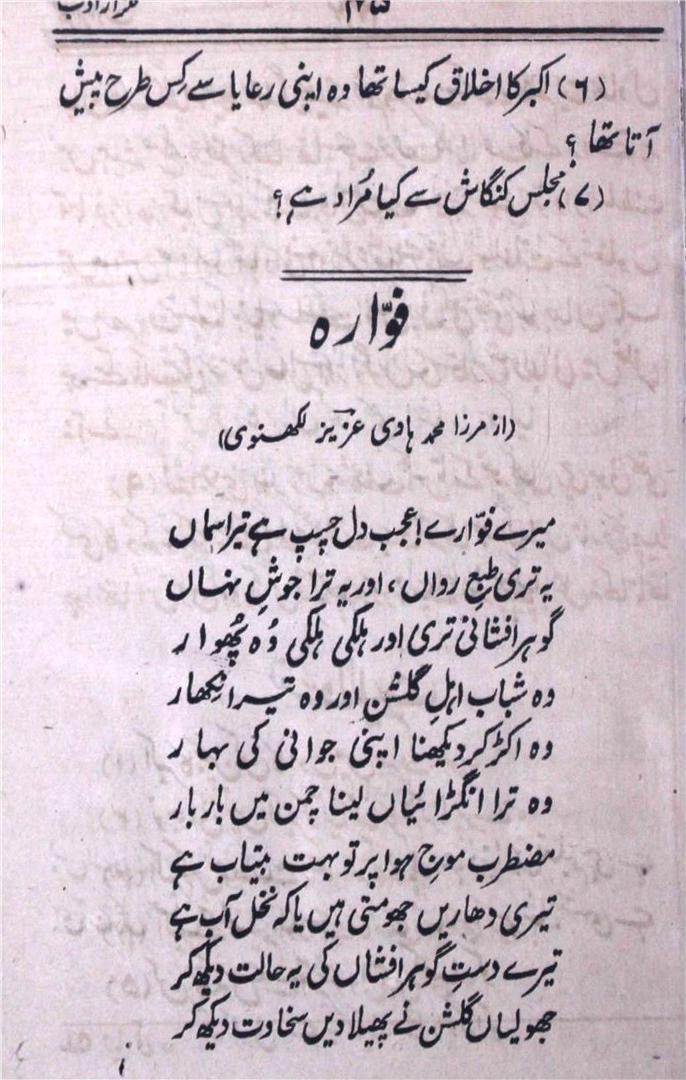 (۶) اکبر کا اخلاق کیسا تھا وہ اپنی رعایا سے کِس طرح پیش
آتا تھا ؟
(۷) مجلس کنگاش سے کیا مُراد ہے ؟
فوّارہ
(از مرزا محمد ہادی عزیز لکھنوی)
میرے فوّارے! عجب دل چسپ ہے تیرا سماں
یہ تری طبعِ رواں، اور یہ ترا جوشِ نہاں
گوہر افشانی تری اور ہلکی ہلکی وُہ پُھوار
وہ شباب اہلِ گلشن اور وہ تیرا نِکھار
وہ اکڑ کر دیکھنا اپنی جوانی کی بہار
وہ ترا انگڑائیاں لینا چمن میں بار بار
مضطرب موجِ ہوا پر تو بہت بیتاب ہے
تیری دھاریں جھومتی ہیں یا کہ نخل آب ہے
تیرے دستِ گوہر افشاں کی یہ حالت دیکھ کر
جھولیاں گلشن نے پھیلا دیں سخاوت دیکھ کر